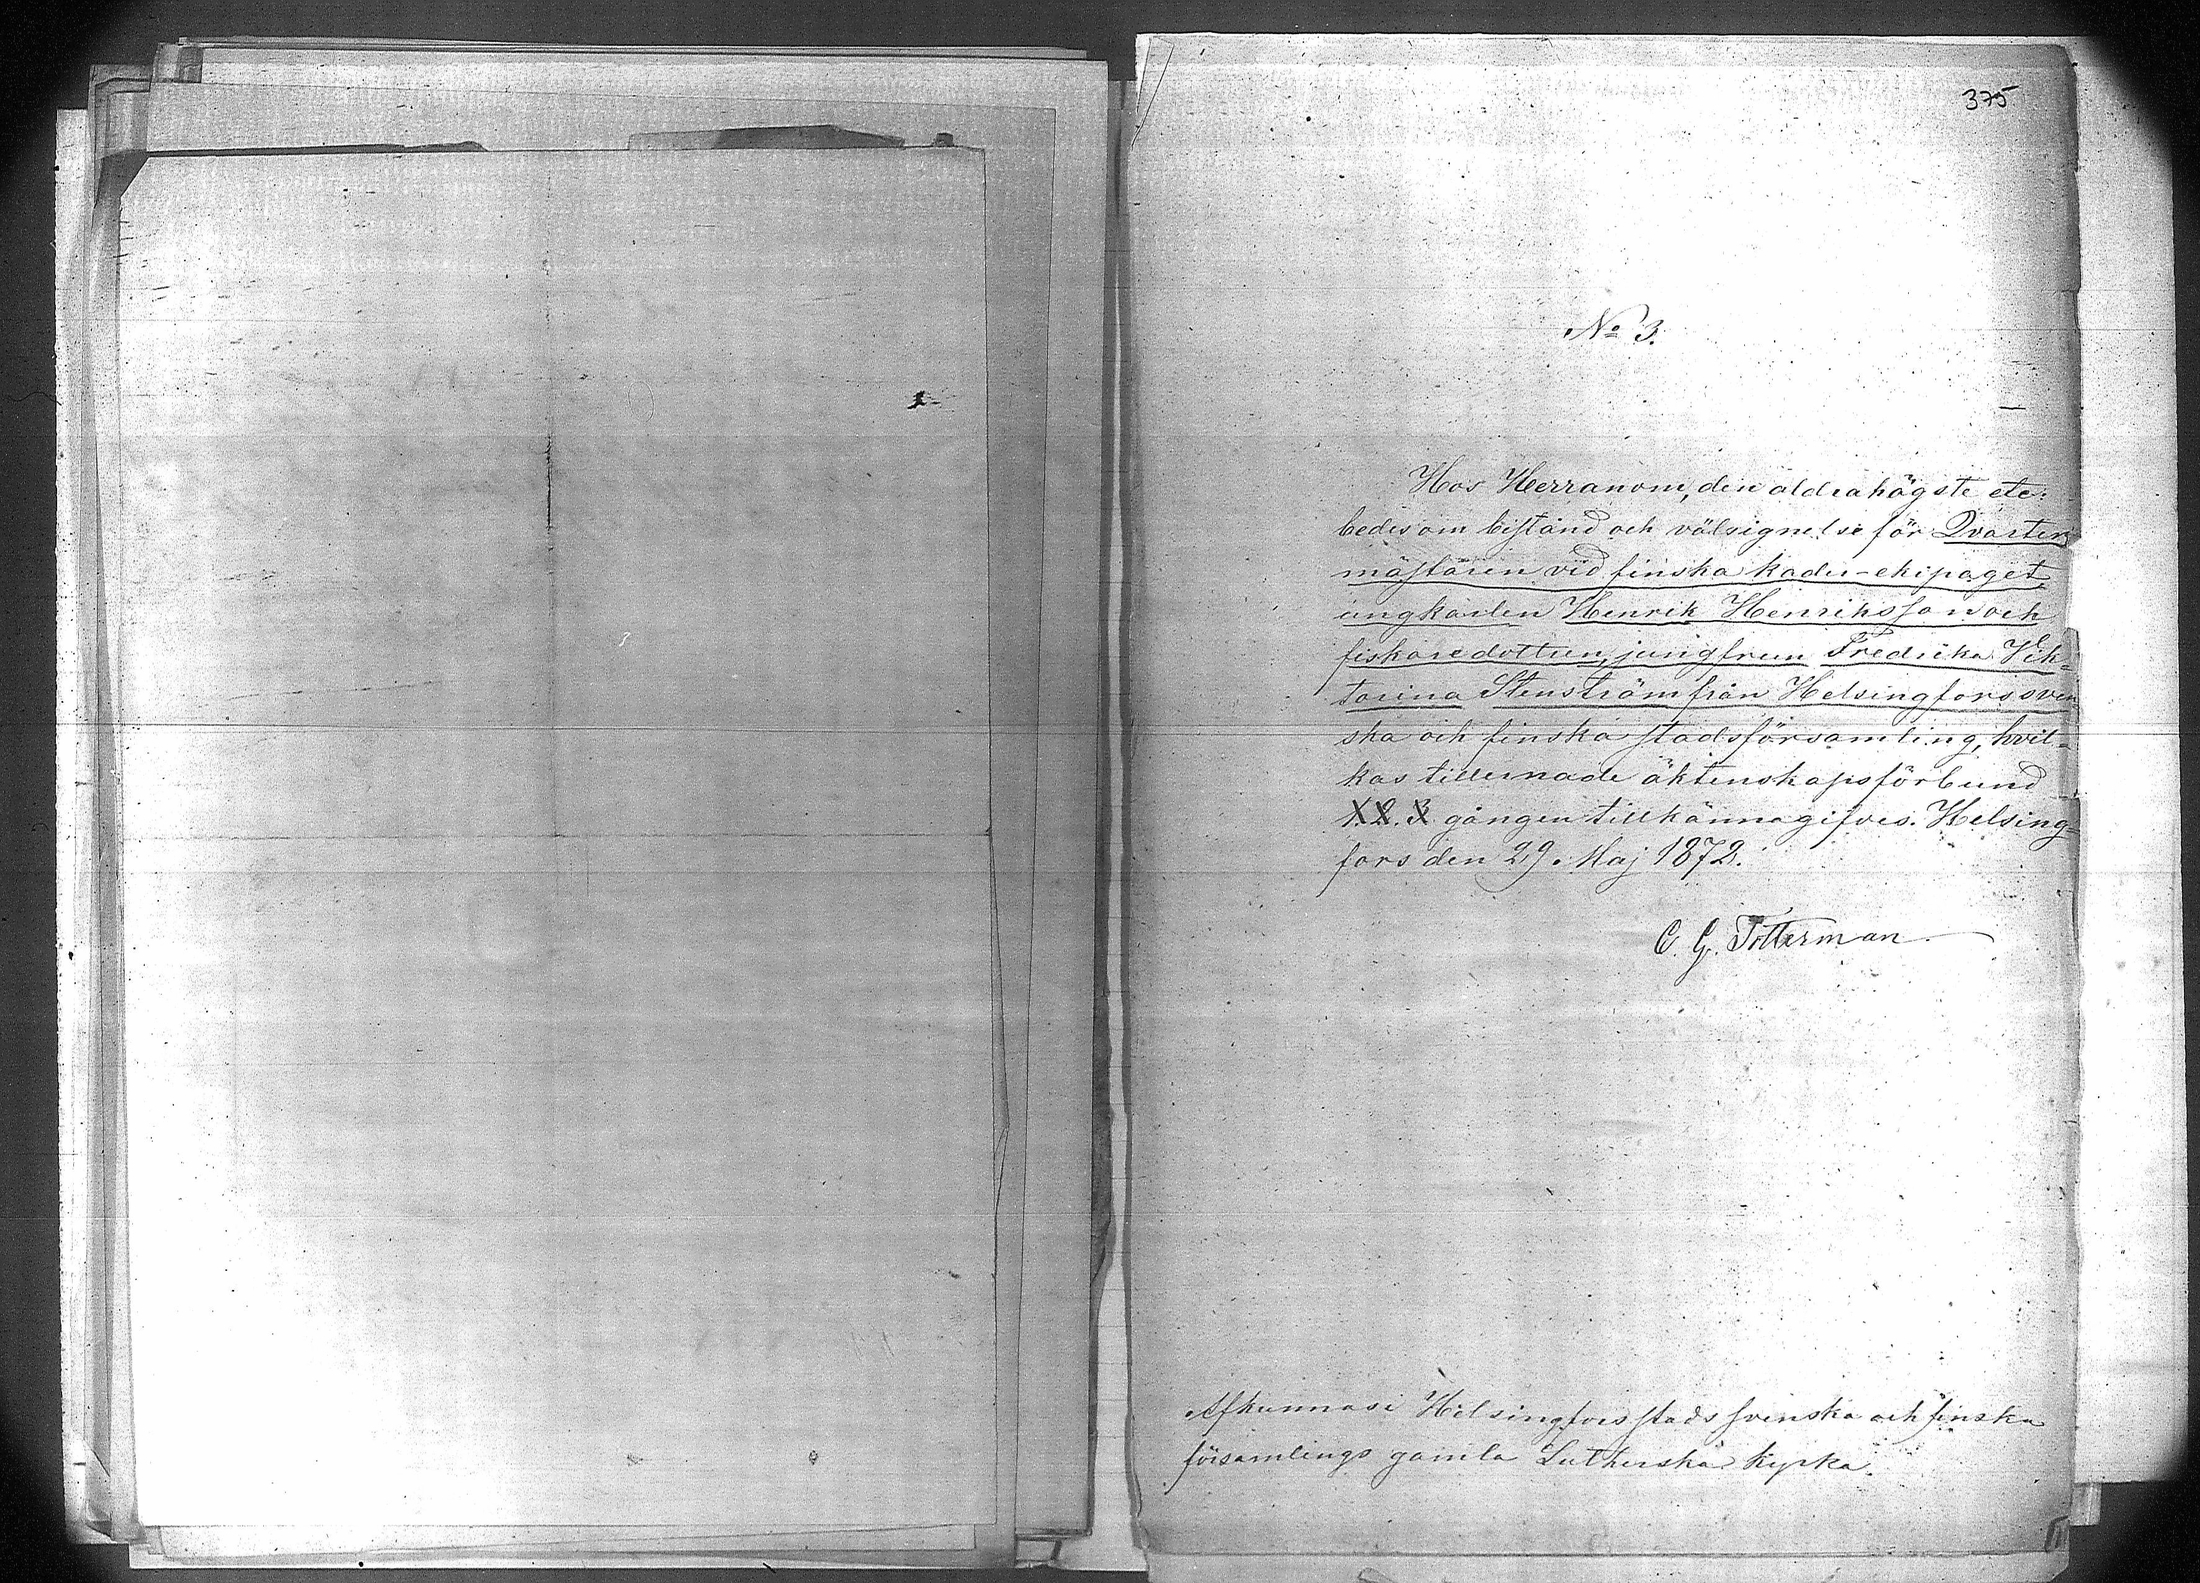 375
No 3.
Hos Herranom, den aldrahögste etc:
bedes om bistånd och välsignelse för Qvarter-
mästaren vid finska kader-ekipaget
ungkarlen Henrik Henriksson och
fiskaredottren, jungfrun Fredrika Vik-
torina Stenström från Helsingfors sven-
ska och finska stadsförsamling, hvil-
kas tillernade äktenskapsförbund
1. 2. 3 gången tillkännagifves. Helsing-
fors den 29. Maj 1872.
C. G. Totterman
Afkunnas i Helsingfors stads svenska och finska
församlings gamla Lutherska kyrka.